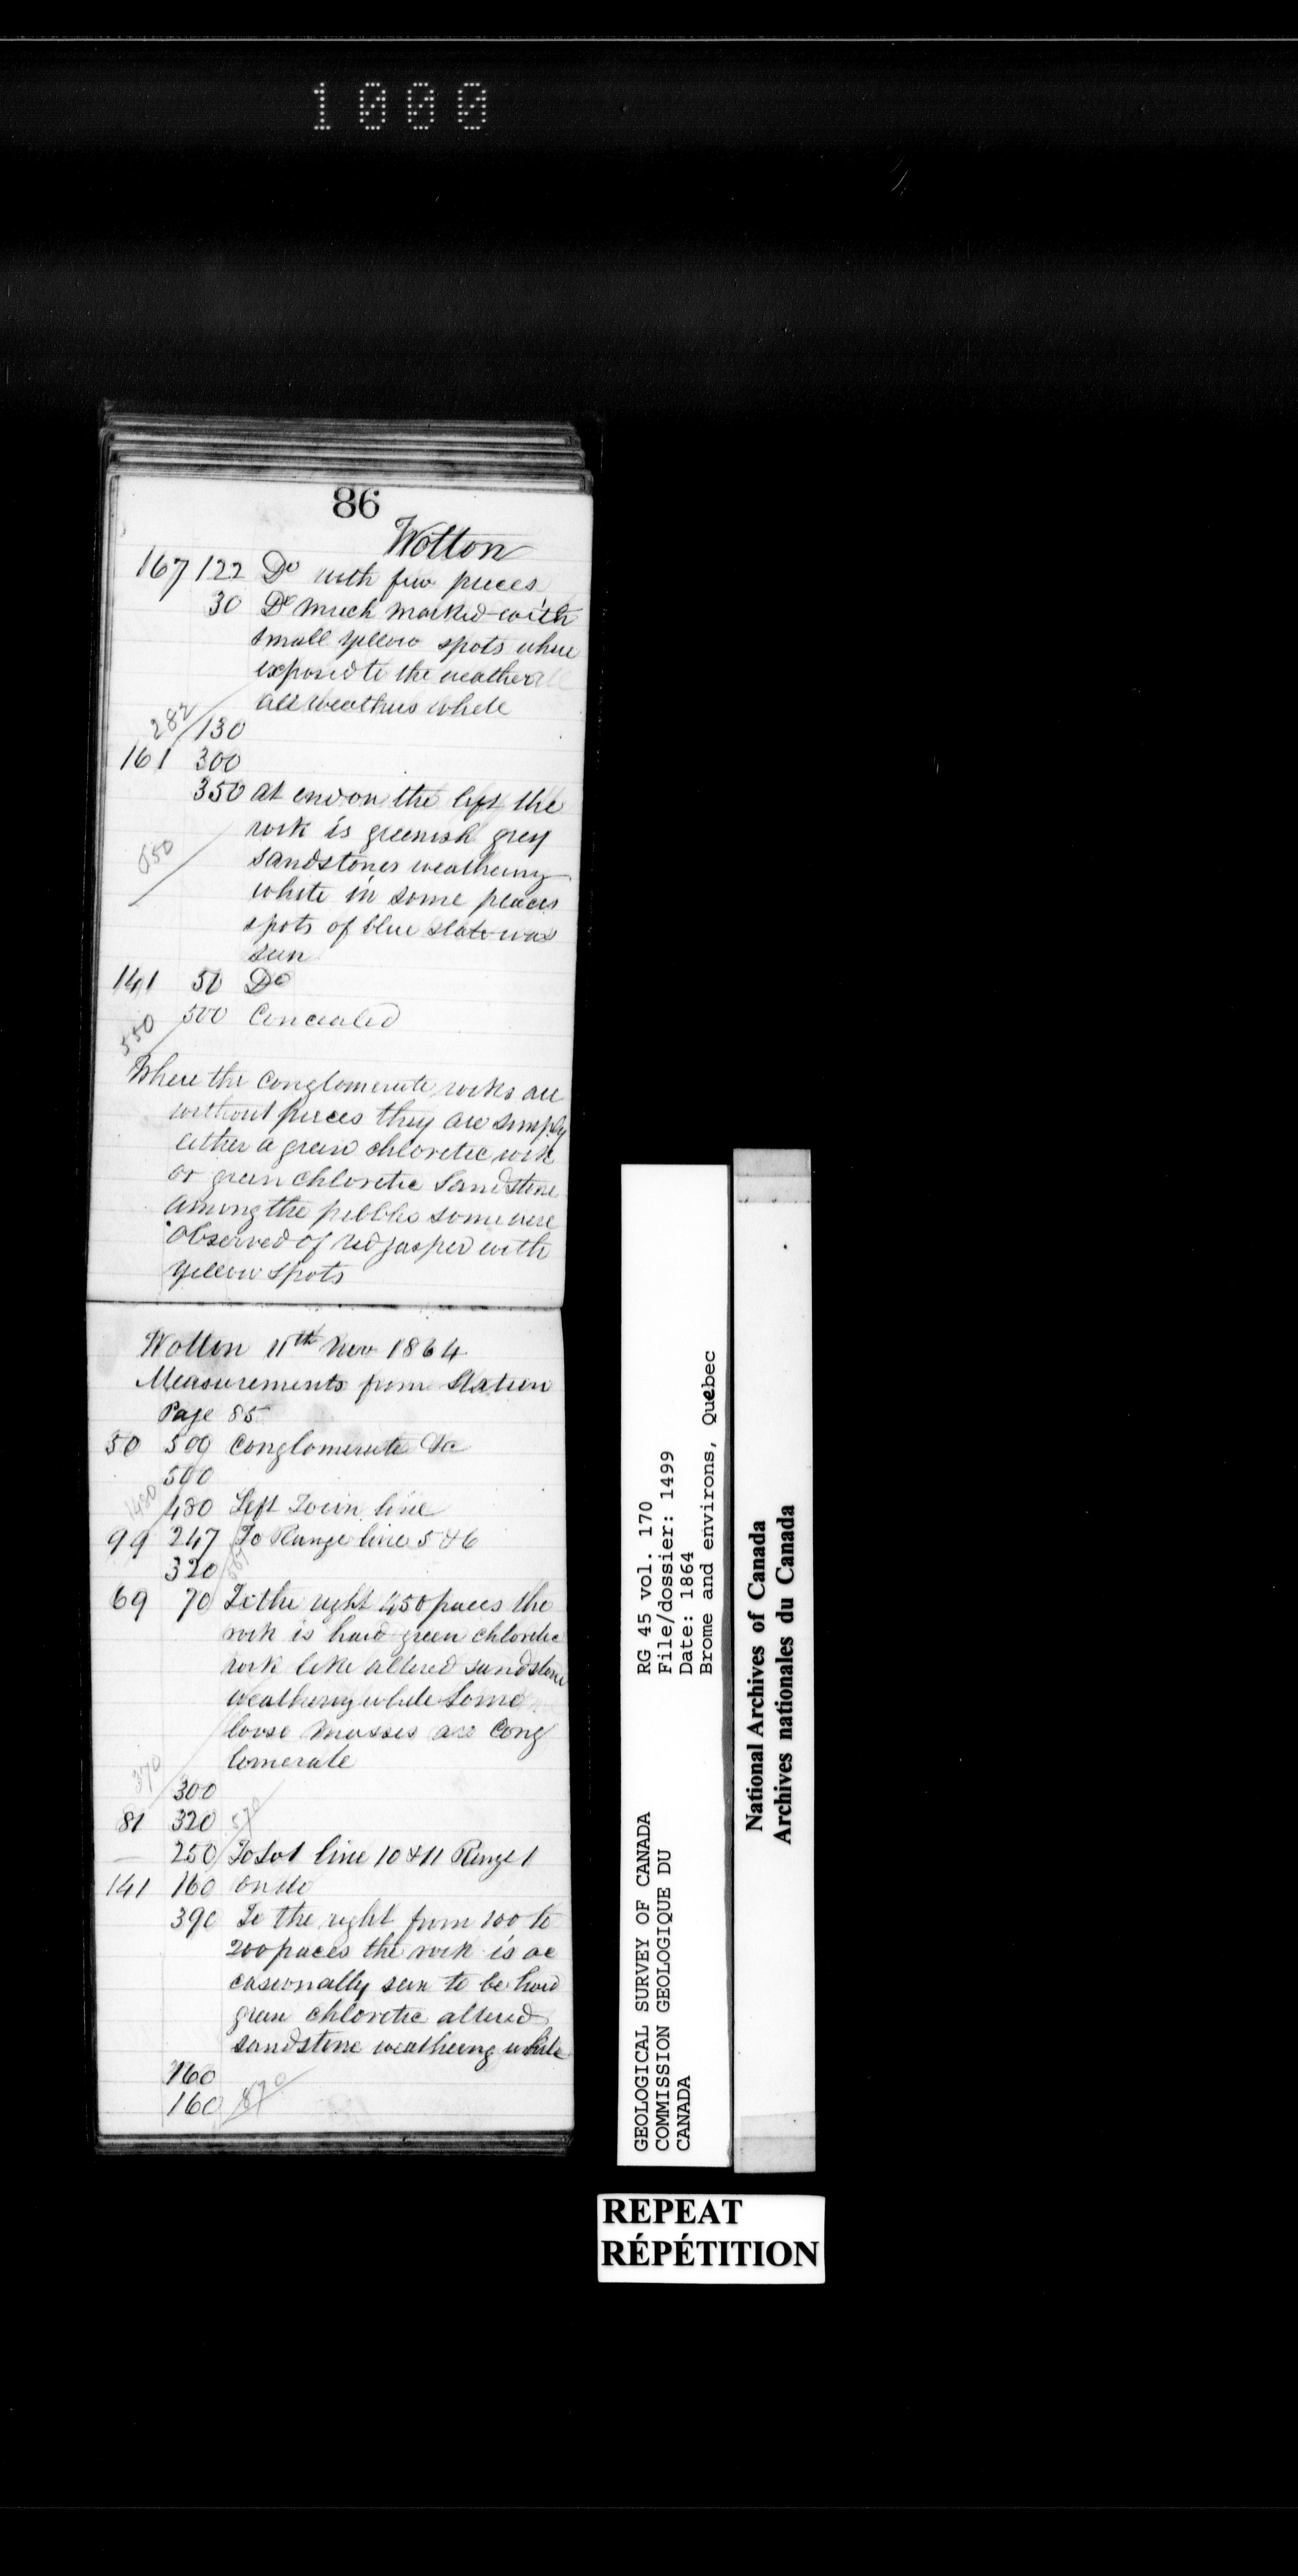 1000
86
Wotton
167 122 Do with few pieces
30 Do much marked with
small yellow spots where
exposed to the weather
all weathers white
282 130
161 300
350 at end on the left the
rock is greenish grey
sandstones weathering
650
white in some places
spots of blue slate was
seen
141 50 Do
500 Concealed
550
Where the conglomerate rocks are
without pieces they are simply
either a green chloretic rock
or green chloretic sandstone
among the pebbles some were
observed of red jasper with
yellow spots
Wotton 11th Nov 1864
Measurements from Station
Page 85
50 500 Conglomerate &c
500
1480 480 Left Town line
99 247 To Range line 5 & 6
320 567
69 70 To the right 450 paces the
rock is hard green chloretic
rock like altered sandstone
weathering white Some
loose masses are Cong
lomerate
370 300
81 320 570
250 To Lot line 10 & 11 Range 1
141 160 on do
390 To the right from 100 to
200 paces the rock is oc
casionally seen to be hard
green chloretic altered
sandstone weathering white
160
160 870
GEOLOGICAL SURVEY OF CANADA
COMMISSION GEOLOGIQUE DU
CANADA
RG 45 vol. 170
File/dossier: 1499
Date: 1864
Brome and environs, Quebec
National Archives of Canada
Archives nationales du Canada
REPEAT
RÉPÉTITION